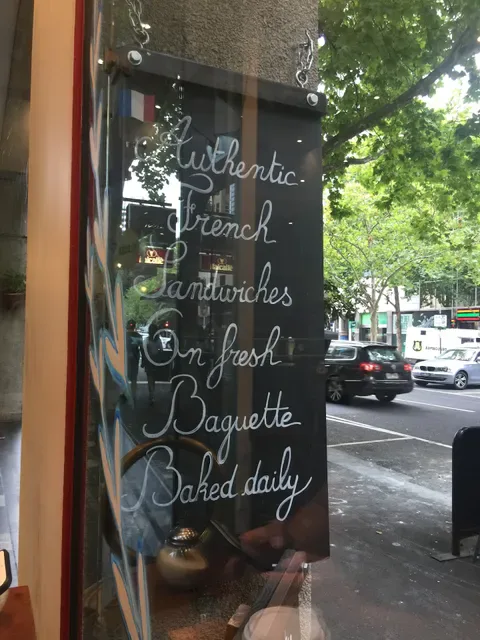 Authentic
French
Sandwiches
On fresh
Baguette
Baked daily